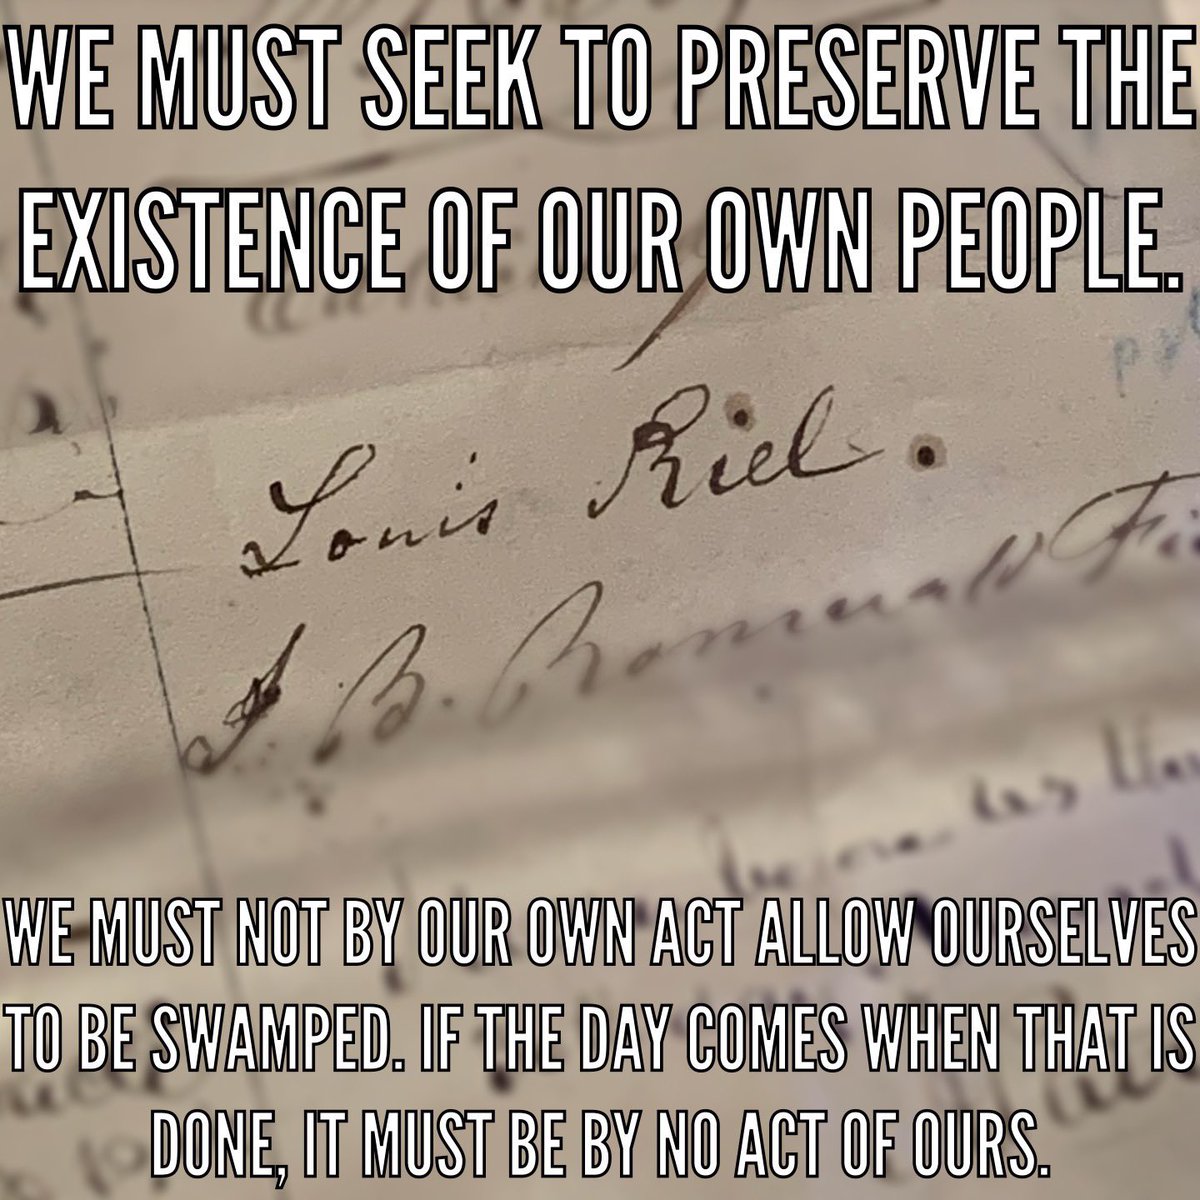 WE MUST SEEK TO PRESERVE THE
EXISTENCE OF OUR OWN PEOPLE.
Louis Riel.
B.
WE MUST NOT BY OUR OWN ACT ALLOW OURSELVES
TO BE SWAMPED. IF THE DAY COMES WHEN THAT IS
DONE, IT MUST BE BY NO ACT OF OURS.